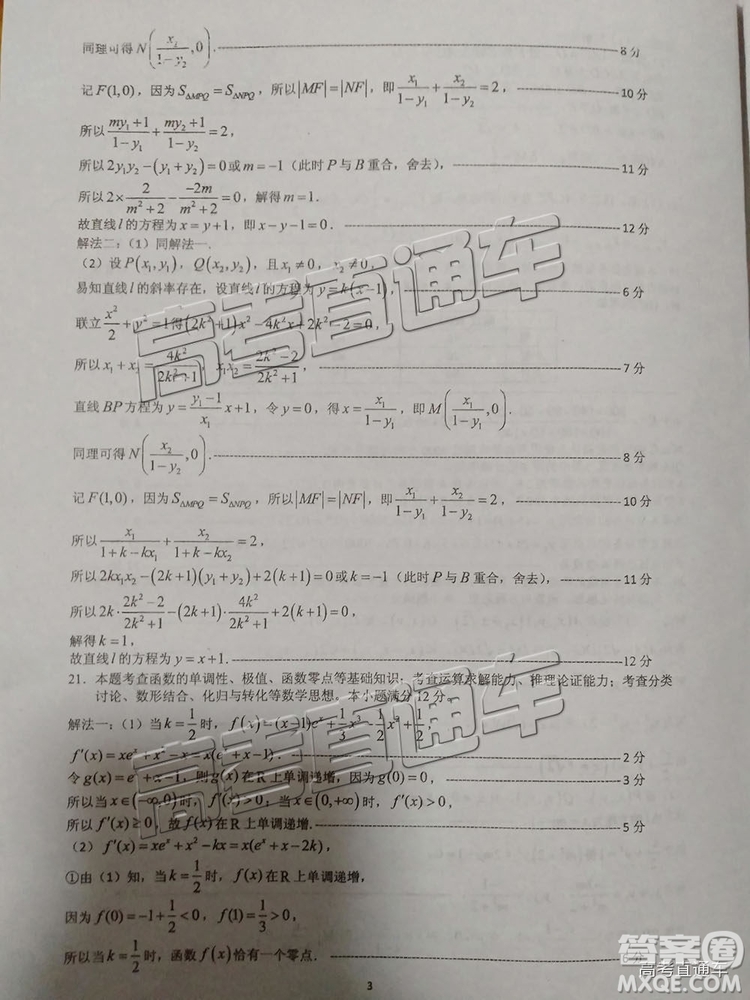 同理可得 N(x₂/(1−y₂), 0). 8 分
记 F(1,0)，因为 S△MPQ = S△NPQ，所以 |MF| = |NF|，即 x₁/(1−y₁) + x₂/(1−y₂) = 2， 10 分
所以 (my₁+1)/(1−y₁) + (my₂+1)/(1−y₂) = 2，
所以 2y₁y₂ − (y₁+y₂) = 0 或 m = −1（此时 P 与 B 重合，舍去）， 11 分
所以 2 × 2/(m²+2) − (−2m)/(m²+2) = 0，解得 m = 1.
故直线 l 的方程为 x = y+1，即 x − y − 1 = 0. 12 分
解法二：（1）同解法一.
（2）设 P(x₁,y₁)，Q(x₂,y₂)，且 x₁ ≠ 0，x₂ ≠ 0，
易知直线 l 的斜率存在，设直线 l 的方程为 y = k(x−1)， 6 分
联立 x²/2 + y² = 1 得 (2k²+1)x² − 4k²x + 2k² − 2 = 0，
所以 x₁ + x₂ = 4k²/(2k²+1)，x₁x₂ = (2k²−2)/(2k²+1)， 7 分
直线 BP 方程为 y = (y₁−1)/x₁ x + 1，令 y = 0，得 x = x₁/(1−y₁)，即 M(x₁/(1−y₁), 0).
同理可得 N(x₂/(1−y₂), 0). 8 分
记 F(1,0)，因为 S△MPQ = S△NPQ，所以 |MF| = |NF|，即 x₁/(1−y₁) + x₂/(1−y₂) = 2， 10 分
所以 x₁/(1+k−kx₁) + x₂/(1+k−kx₂) = 2，
所以 2kx₁x₂ − (2k+1)(y₁+y₂) + 2(k+1) = 0 或 k = −1（此时 P 与 B 重合，舍去）， 11 分
所以 2k · (2k²−2)/(2k²+1) − (2k+1) · 4k²/(2k²+1) + 2(k+1) = 0，
解得 k = 1，
故直线 l 的方程为 y = x+1. 12 分
21．本题考查函数的单调性、极值、函数零点等基础知识；考查运算求解能力、推理论证能力；考查分类
讨论、数形结合、化归与转化等数学思想。本小题满分 12 分.
解法一：（1）当 k = 1/2 时，f(x) = (x−1)eˣ + 1/3 x³ − 1/2 x² + 1/2，
f′(x) = xeˣ + x² − x = x(eˣ + x − 1). 2 分
令 g(x) = eˣ + x − 1，则 g(x) 在 R 上单调递增，因为 g(0) = 0， 3 分
所以当 x ∈ (−∞,0) 时，f′(x) > 0；当 x ∈ (0,+∞) 时，f′(x) > 0，
所以 f′(x) ≥ 0，故 f(x) 在 R 上单调递增. 5 分
（2）f′(x) = xeˣ + x² − kx = x(eˣ + x − 2k)，
①由（1）知，当 k = 1/2 时，f(x) 在 R 上单调递增，
因为 f(0) = −1 + 1/2 < 0，f(1) = 1/3 > 0，
所以当 k = 1/2 时，函数 f(x) 恰有一个零点. 6 分
3
高考直通车
高考直通车
答案卷
高考直通车